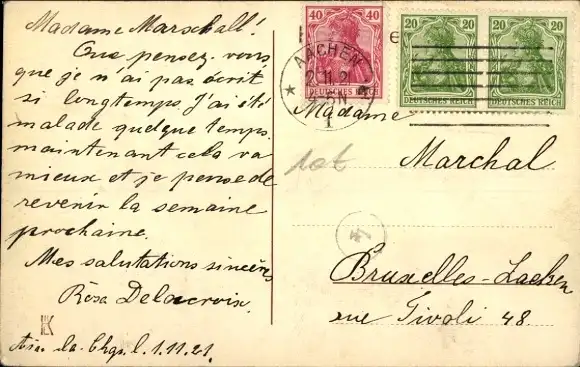 Madame Marschall!
Que pensez-vous
que je n'ai pas écrit
si longtemps. J'ai été
malade quelque temps
maintenant cela va
mieux et je pense de
revenir la semaine
prochaine.
Mes salutations sincères
Rosa Delacroix.
Aix-la-Chap. l. 1.11.21.
40 40
DEUTSCHES REICH
20 20
DEUTSCHES REICH
20 20
DEUTSCHES REICH
AACHEN
2.11.21
1
Madame
Marchal
Bruxelles-Laeken
rue Tivoli 48.